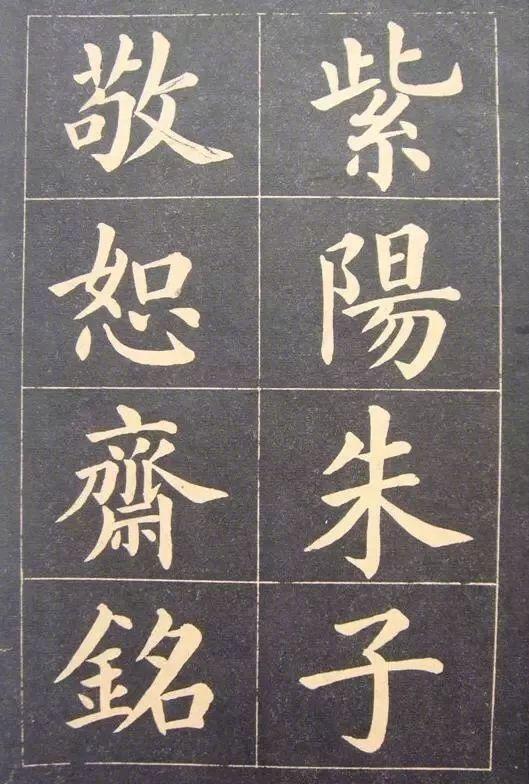 紫陽朱子
敬恕齋銘